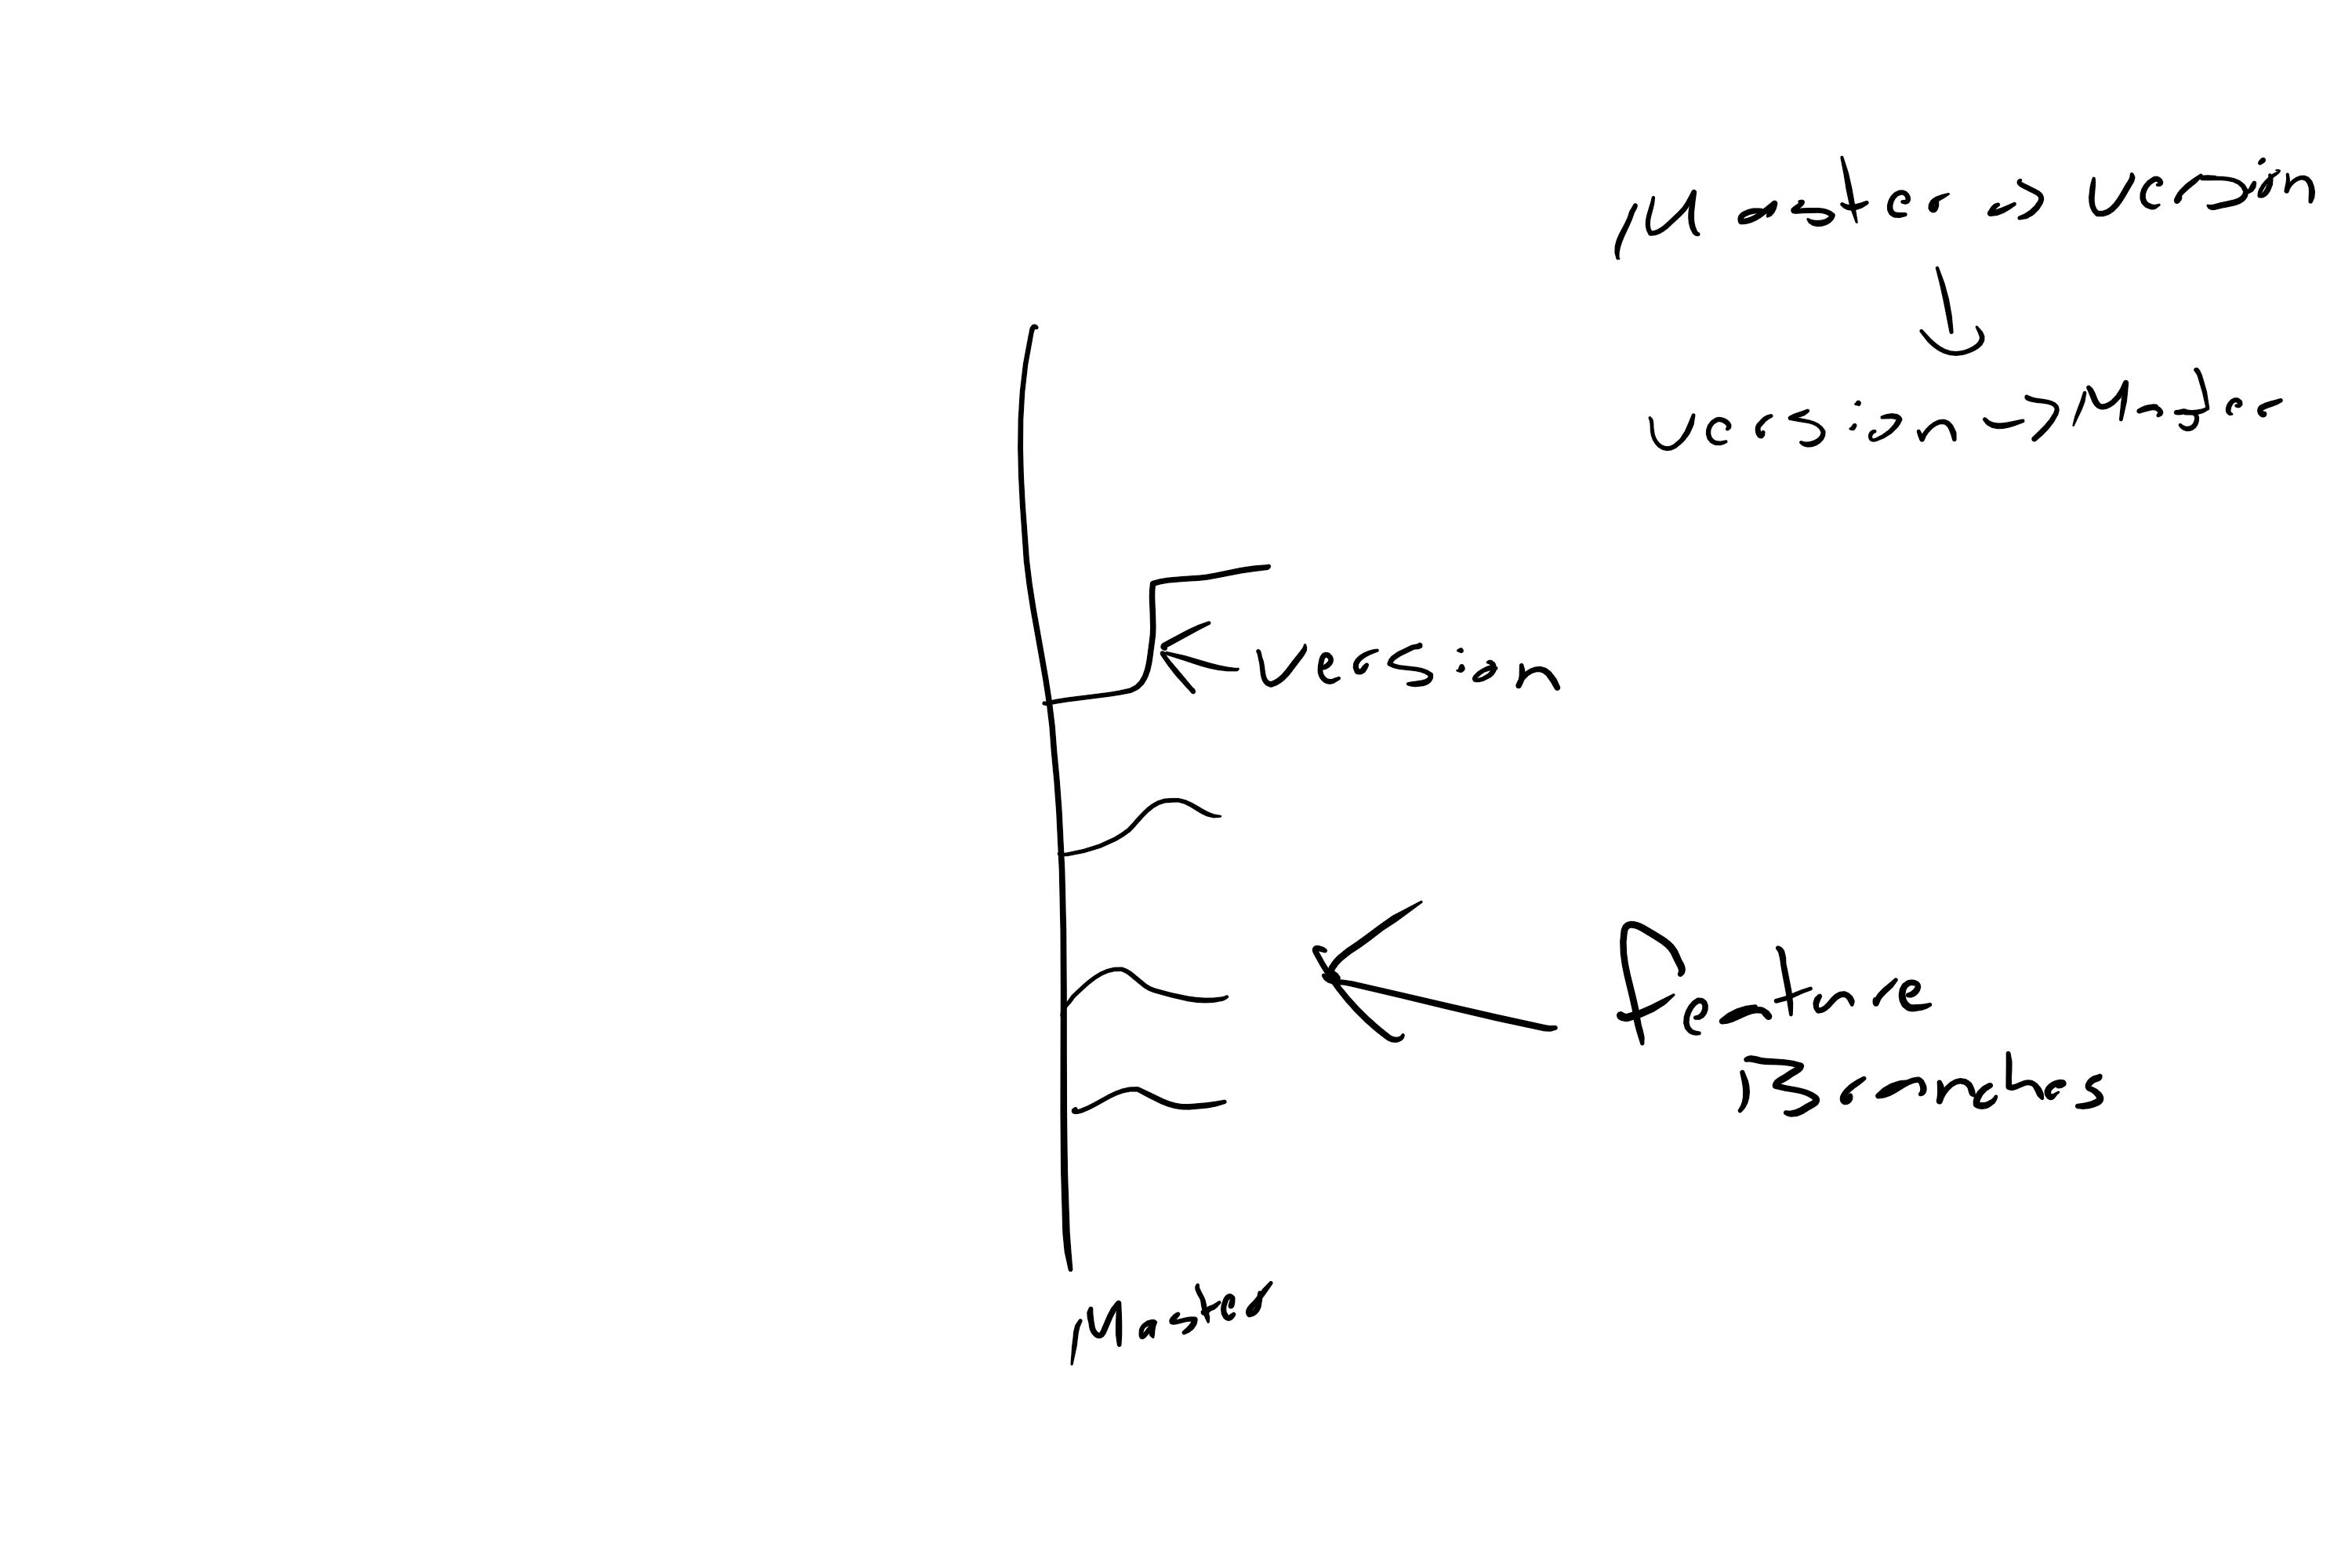 Master → version
↓
version → Master
version
feature
Branches
Master